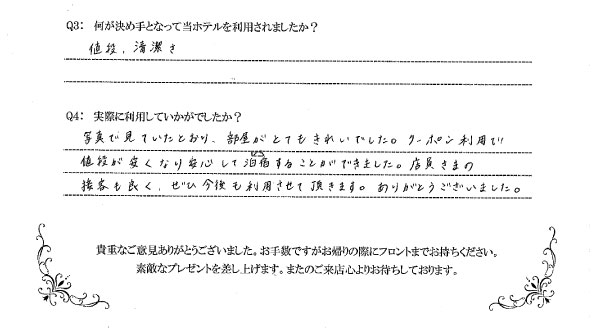 Q3: 何が決め手となって当ホテルを利用されましたか?
値段、清潔さ
Q4: 実際に利用していかがでしたか?
写真で見ていたとおり、部屋がとてもきれいでした。クーポン利用で
値段が安くなり安心して泊宿することができました。店員さまの
接客も良く、ぜひ今後も利用させて頂きます。ありがとうございました。
貴重なご意見ありがとうございました。お手数ですがお帰りの際にフロントまでお持ちください。
素敵なプレゼントを差し上げます。またのご来店心よりお待ちしております。